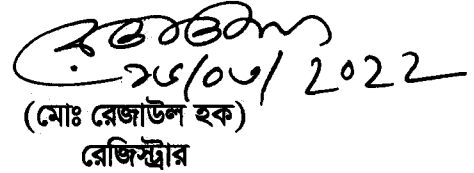 ২৮/০৩/2022
(মোঃ রেজাউল হক)
রেজিস্ট্রার